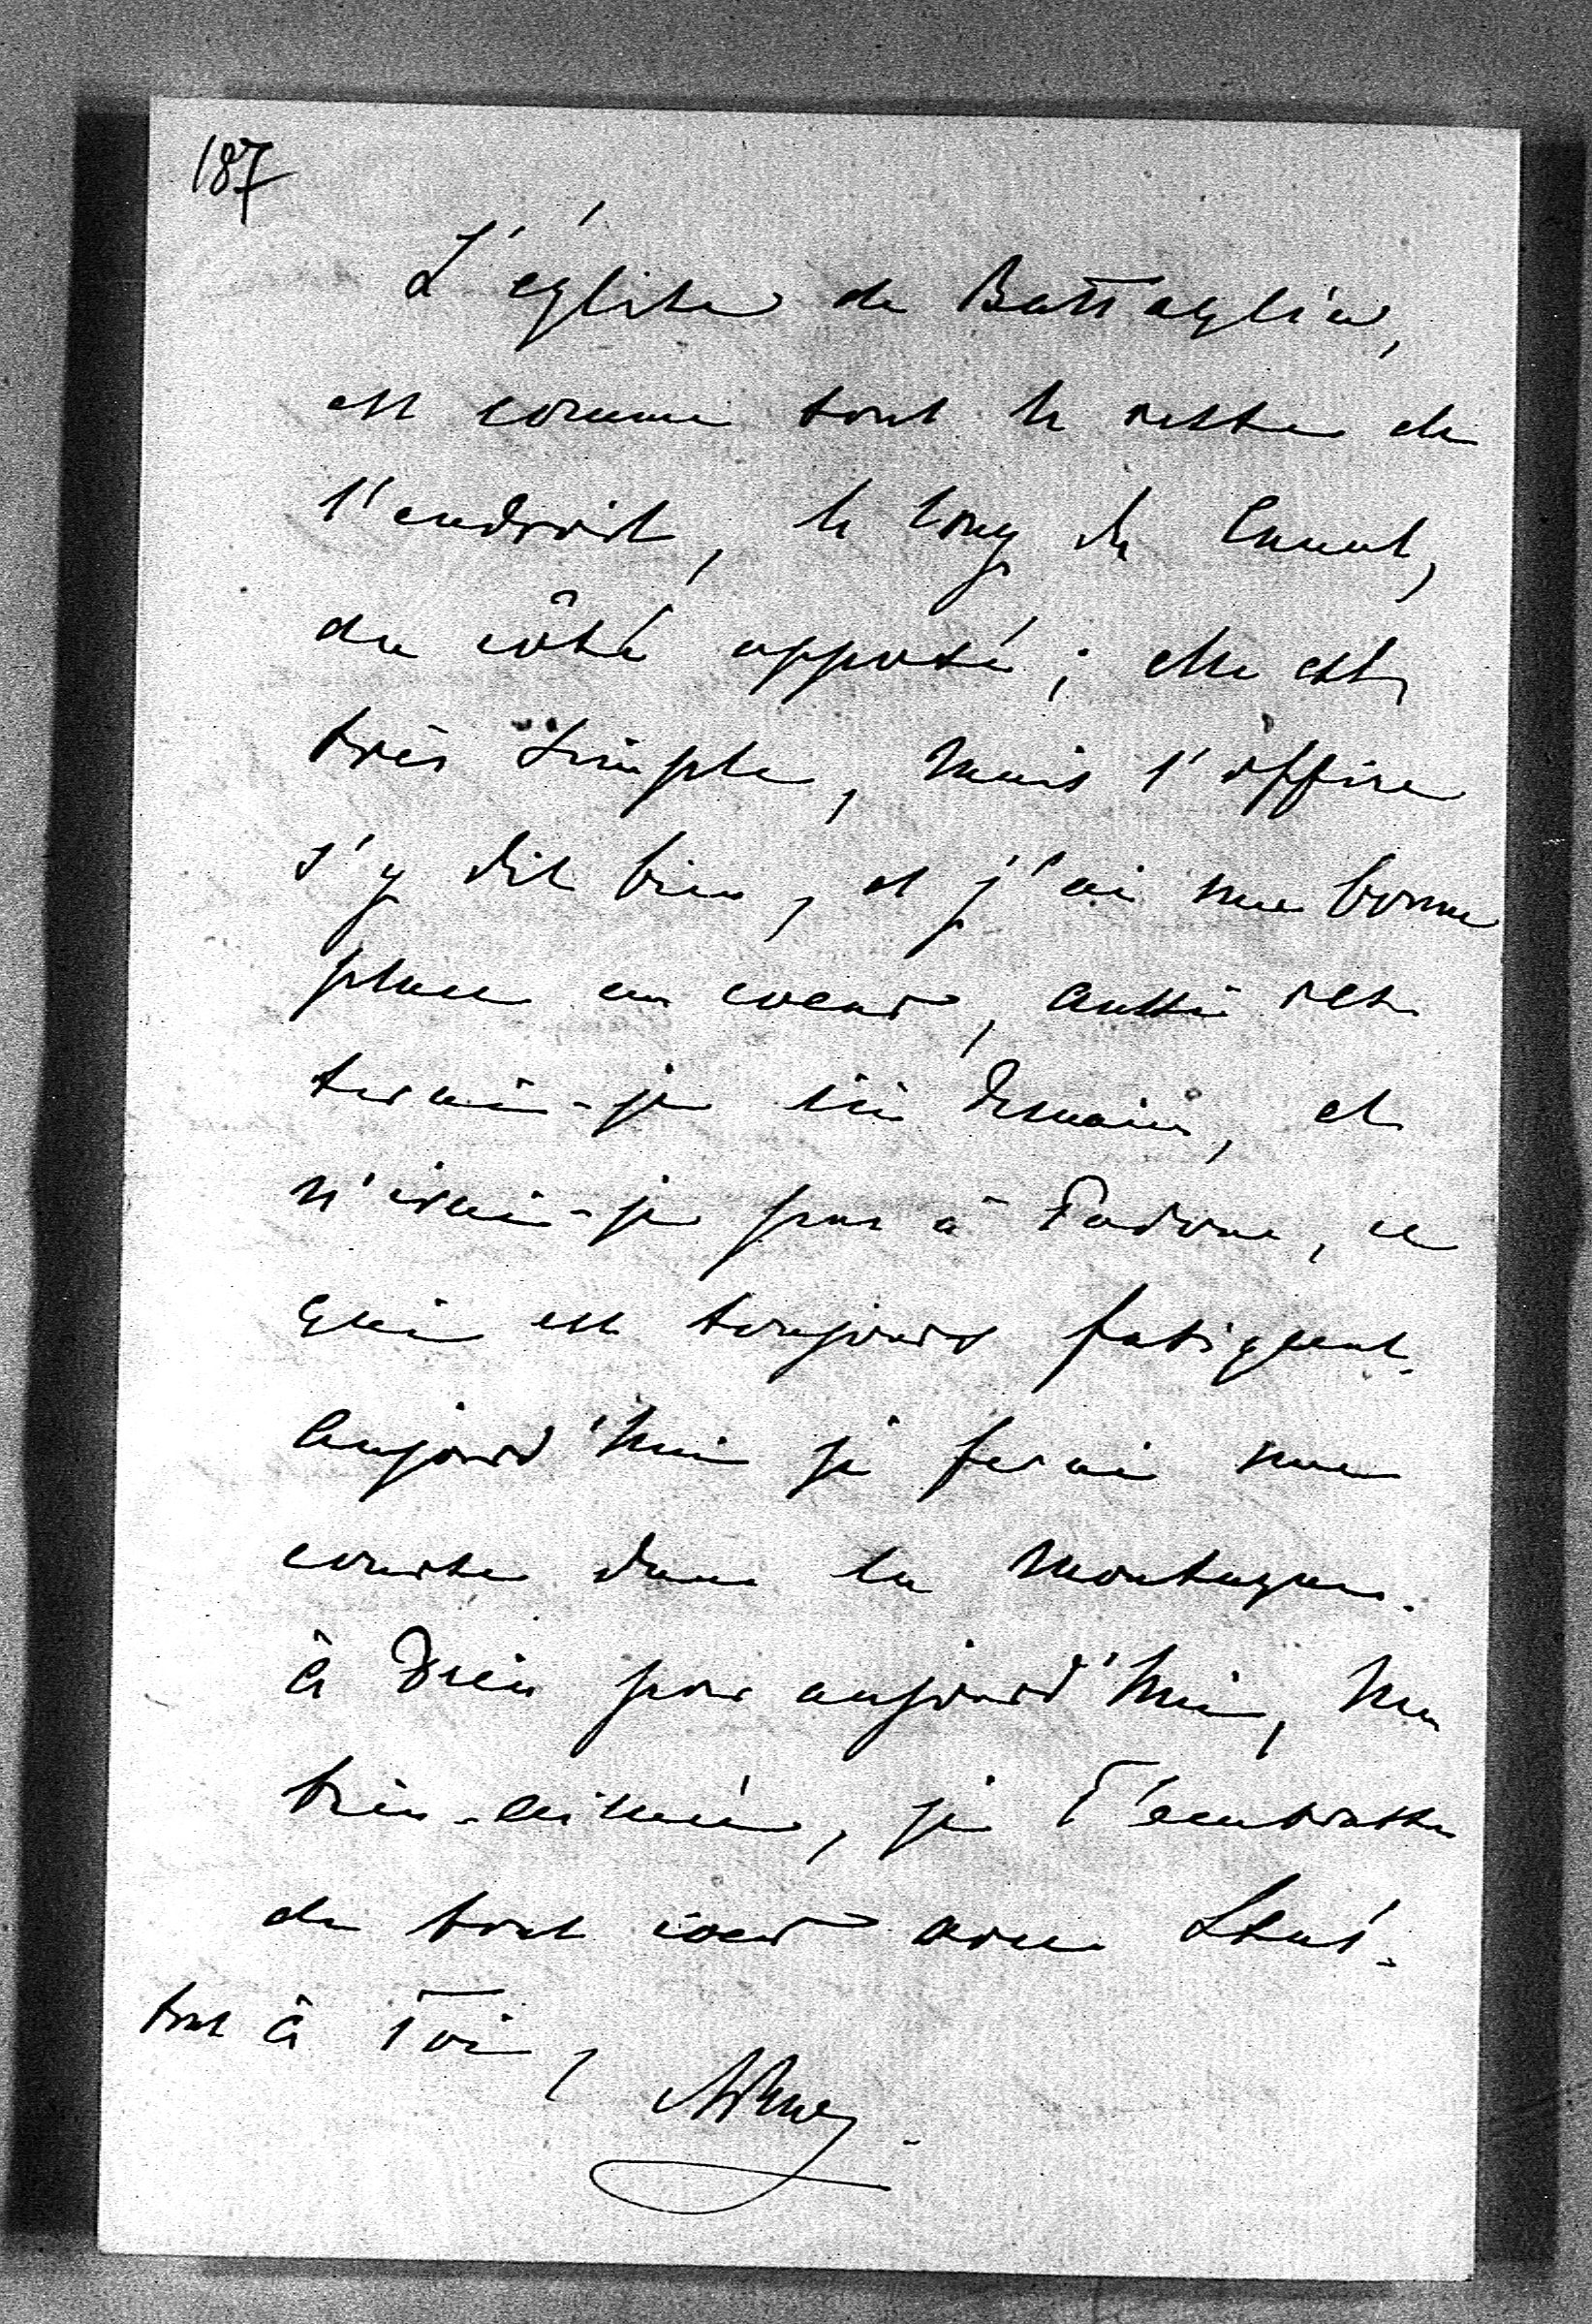 187
L'église de Battaglia,
est comme tout le reste de
l'endroit, le long du Canal,
du côté opposé; elle est
très simple, mais l'office
s'y dit bien, et j'ai une bonne
place au coeur, aussi res-
terai-je ici demain, et
n'irai-je pas à Padoue, ce
qui est toujours fatiguant.
Aujourd'hui je ferai une
course dans la montagne.
à Dieu pour aujourd'hui, ma
bien-aimée, je T'embrasse
de tout coeur avec
tout à Toi,